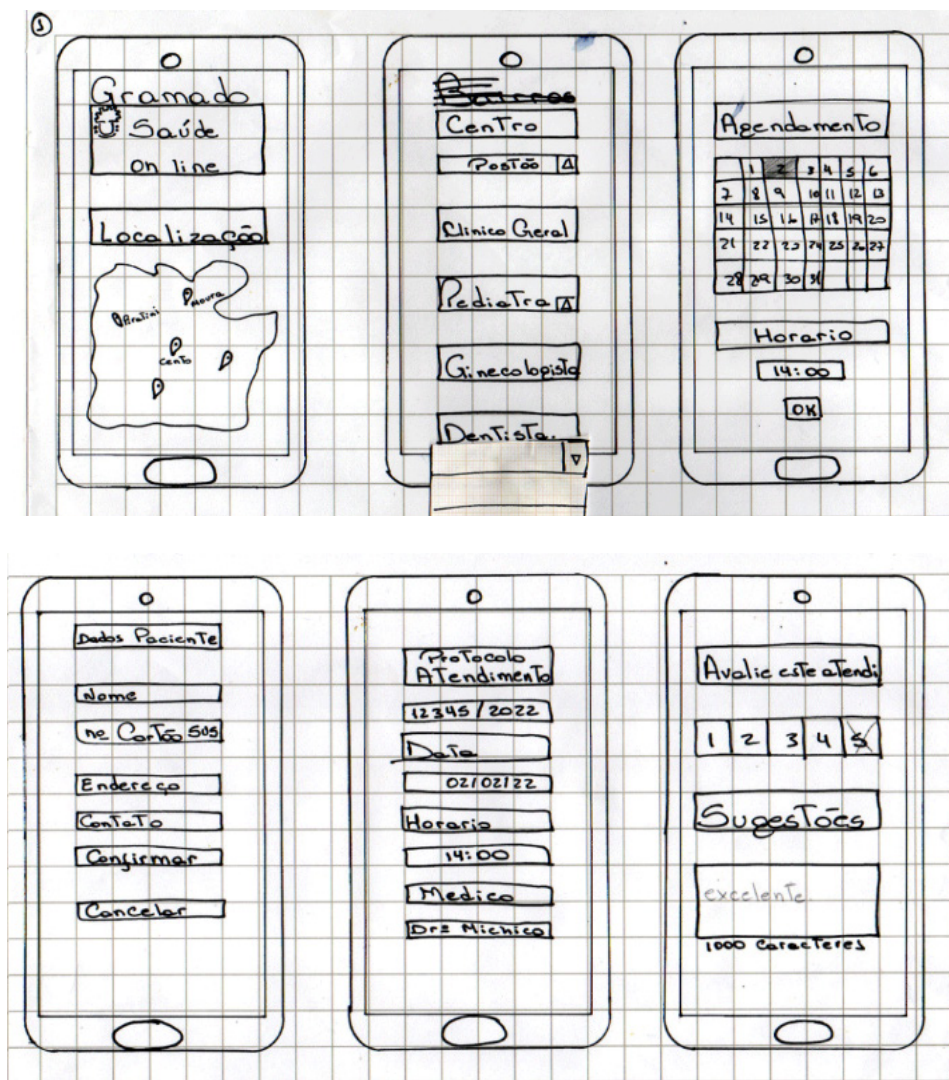 1
Gramado
Saúde
On line
Localização
Piratini
Moura
Cento
Bairros
Centro
Postão
Clinico Geral
Pediatra
Ginecologista
Dentista.
Agendamento
1 2 3 4 5 6
7 8 9 10 11 12 13
14 15 16 17 18 19 20
21 22 23 24 25 26 27
28 29 30 31
Horario
14:00
OK
Dados Paciente
Nome
nº Cartão SUS
Endereço
Contato
Confirmar
Cancelar
Protocolo
Atendimento
12345/2022
Data
02/02/22
Horario
14:00
Medico
Drª Michica
Avalie este atendi
1 2 3 4 5
Sugestões
excelente
1000 caracteres